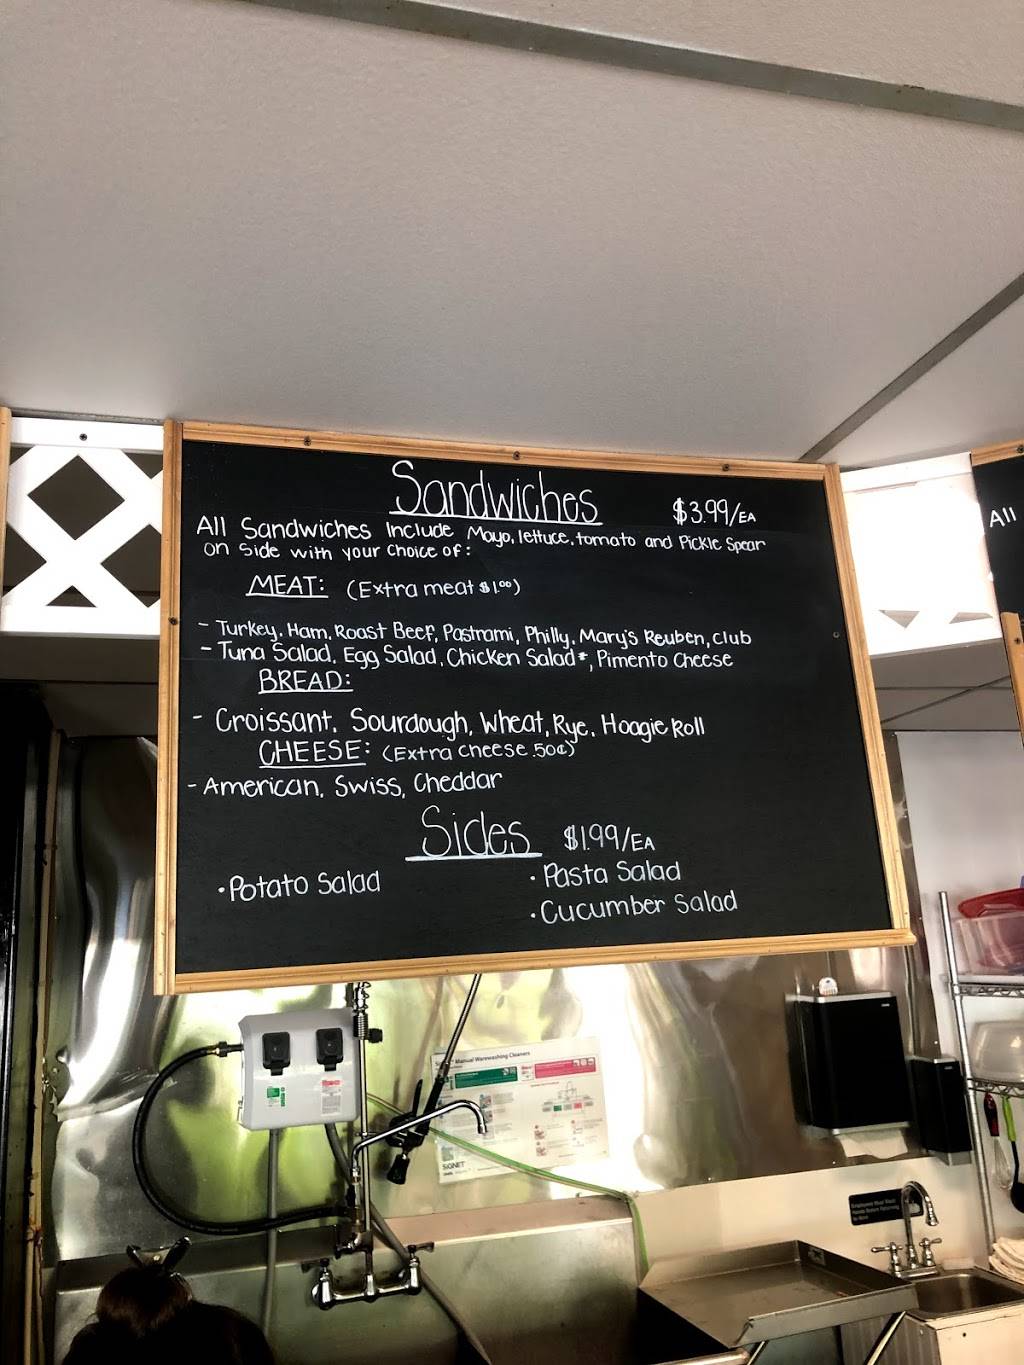 Sandwiches $3.99/EA
All Sandwiches Include Mayo, lettuce, tomato and Pickle Spear
on side with your choice of:
MEAT: (Extra meat $1.00)
- Turkey, Ham, Roast Beef, Pastrami, Philly, Mary's Reuben, club
- Tuna Salad, Egg Salad, Chicken Salad*, Pimento Cheese
BREAD:
- Croissant, Sourdough, Wheat, Rye, Hoagie Roll
CHEESE: (Extra cheese .50¢)
- American, Swiss, Cheddar
Sides $1.99/EA
• Potato Salad
• Pasta Salad
• Cucumber Salad
All
Manual Warewashing Cleaners
SIGNET
Employees Must Wash
Hands Before Returning
to Work